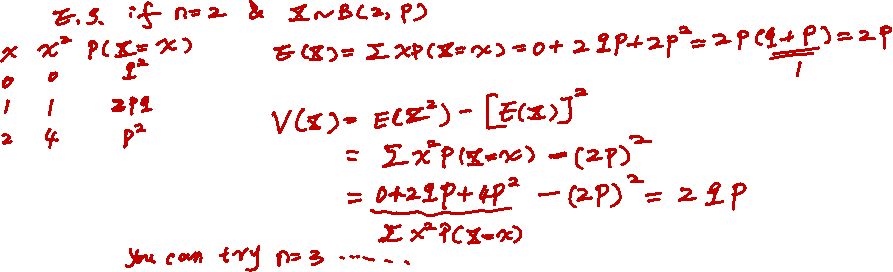 E.g. if n=2 & X~B(2, P)
x x² P(X=x)
0 0 q²
1 1 2pq
2 4 p²
E(X) = Σ xP(X=x) = 0+2qp+2p² = 2p(q+p) = 2p
1
V(X) = E(X²) - [E(X)]²
= Σ x²P(X=x) - (2p)²
= 0+2qp+4p² - (2p)² = 2qp
Σ x²P(X=x)
You can try n=3 ......